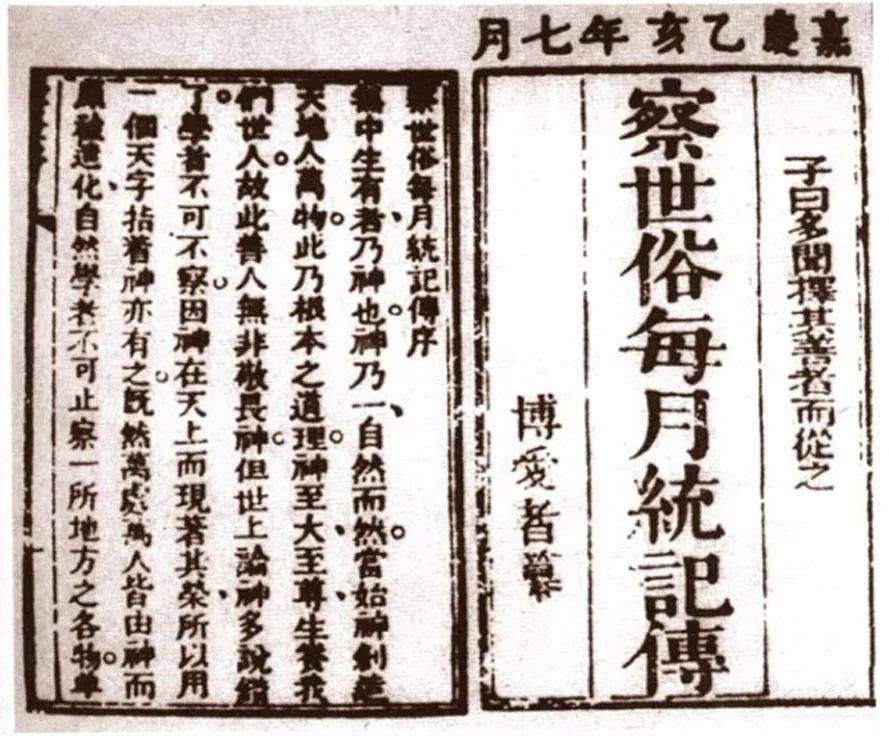 嘉慶乙亥年七月
子曰多聞擇其善者而從之
察世俗每月統記傳
博愛者纂
察世俗每月統記傳序
無中生有者、乃神也。神乃一、自然而然。當始神創造
天地人萬物。此乃根本之道理。神至大、至尊、生養我
們世人。故此善人無非敬畏神。但世上論神多說錯
了。學者不可不察。因神在天上而現著其榮、所以用
一個天字指着神亦有之。既然萬處萬人皆由神而
原被造化、自然學者不可止察一所地方之各物。單